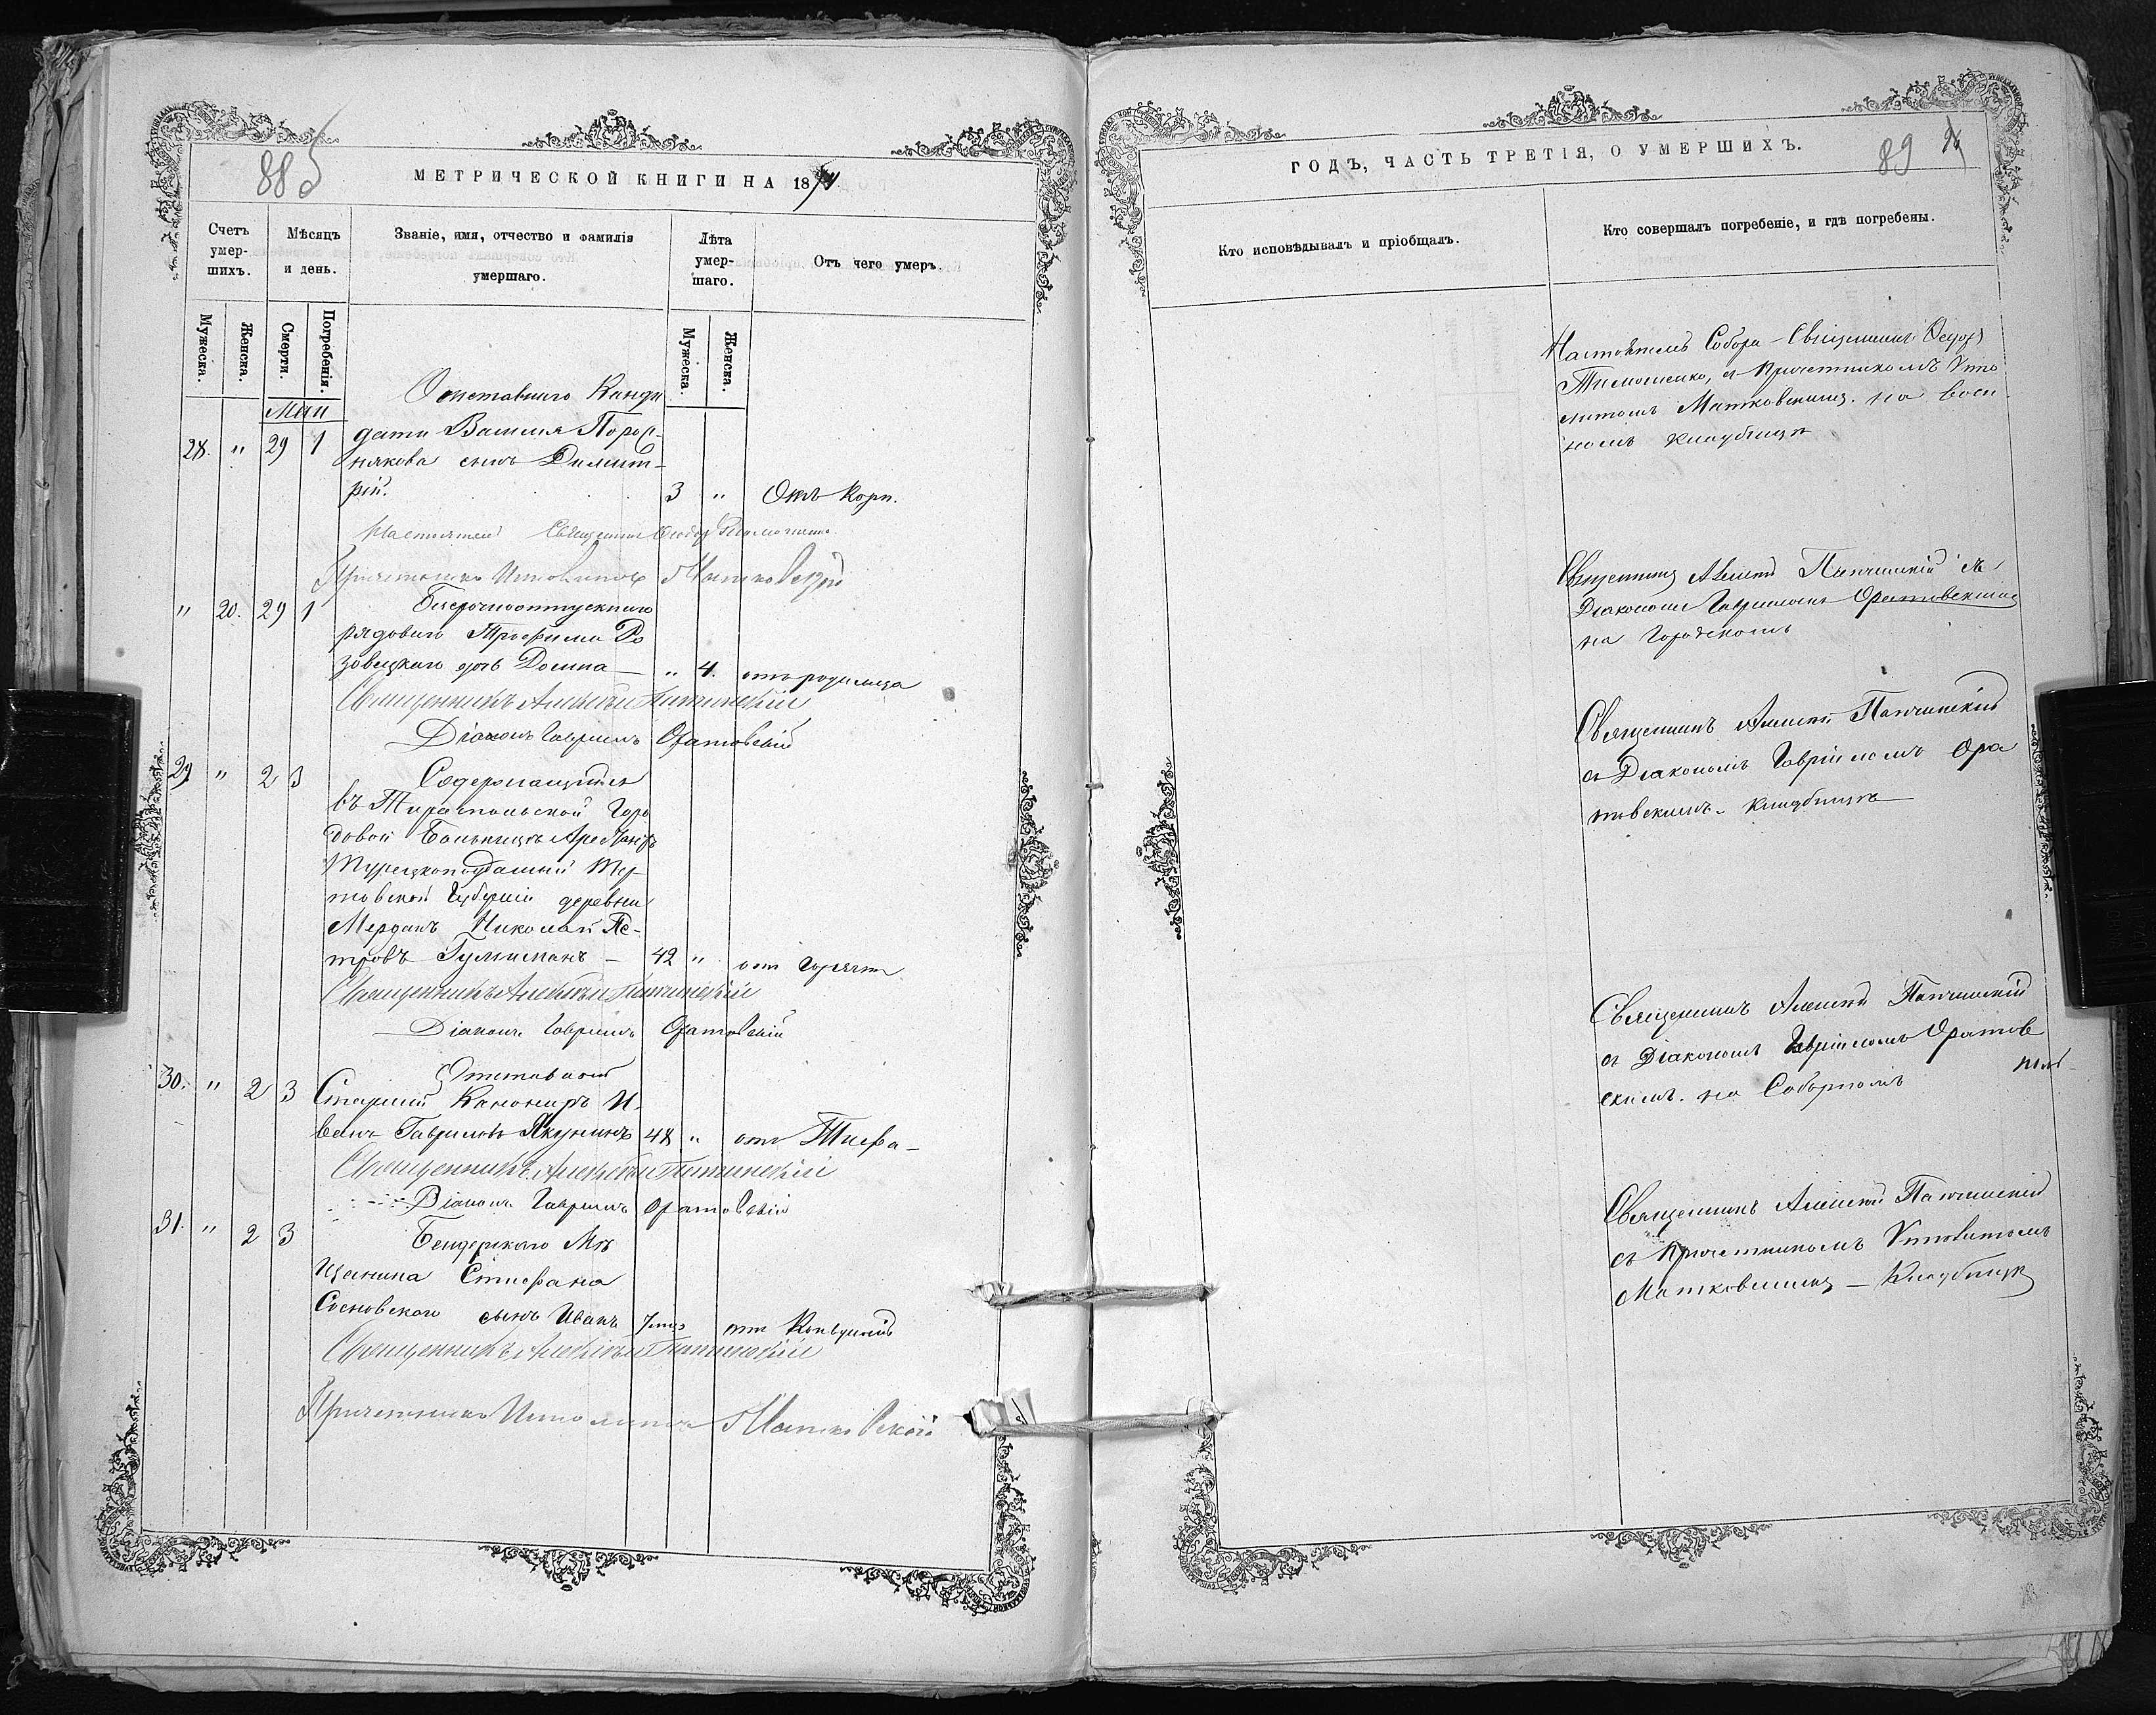 885
МЕТРИЧЕСКОЙ КНИГИ НА 187
Счетъ умер-шихъ.
Мѣсяцъ и день.
Званіе, имя, отчество и фамилія умершаго.
Лѣта умер-шаго.
Отъ чего умеръ.
Мужеска.
Женска.
Смерти.
Погребенія.
Мужеска.
Женска.
Маи
28. " 29 1
Отставнаго Канди
дата Василия
някова сынъ Димит-
рій. 3 " Отъ Кори.
Настоятель Священникъ Феодоръ Тимошенко
Причетникъ Ипполитъ Матковскій
" 20. 29 1
Безсрочноотпускнаго
рядоваго Трофима Ро
зовецкаго дочь Домна — " 4. отъ родимца
Священникъ Алексѣй Папчинскій
Діаконъ Гавриилъ Оратовскій
29 " 2 3
Содержащійся
въ Тираспольской Горо
довой Больницѣ Арестантъ
Турецкоподданный
товской Губерніи деревни
Мердань Николай Пе-
тровъ — 42 " отъ горячки
Священникъ Алексѣй Папчинскій
Діаконъ Гавриилъ Оратовскій
30. " 2 3
Отставной
Старшій Канониръ И-
ванъ Гавриловъ Якунинъ 48 " отъ Тифа —
Священникъ Алексѣй Папчинскій
Діаконъ Гавриилъ Оратовскій
31. " 2 3
Бендерскаго Мѣ
щанина Стефана
Сосновскаго сынъ Иванъ 7 отъ Конвульсій
Священникъ Алексѣй Папчинскій
Причетникъ Ипполитъ Матковскій
ГОДЪ, ЧАСТЬ ТРЕТІЯ, О УМЕРШИХЪ.
89
Кто исповѣдывалъ и пріобщалъ.
Кто совершалъ погребеніе, и гдѣ погребены.
Настоятель Собора Священникъ Феодоръ
Тимошенко, съ Причетникомъ Иппо
литомъ Матковскимъ. на Воен
номъ кладбищѣ
Священникъ Алексѣй Папчинскій съ
Діакономъ Гавриломъ Оратовскимъ
на Городскомъ
Священникъ Алексѣй Папчинскій
съ Діакономъ Гавріиломъ Ора
товскимъ. кладбищѣ
Священникъ Алексѣй Папчинскій
съ Діакономъ Гавріиломъ Оратов
скимъ. на Соборномъ
Священникъ Алексѣй Папчинскій
съ Причетникомъ Ипполитомъ
Матковскимъ — Кладбищѣ